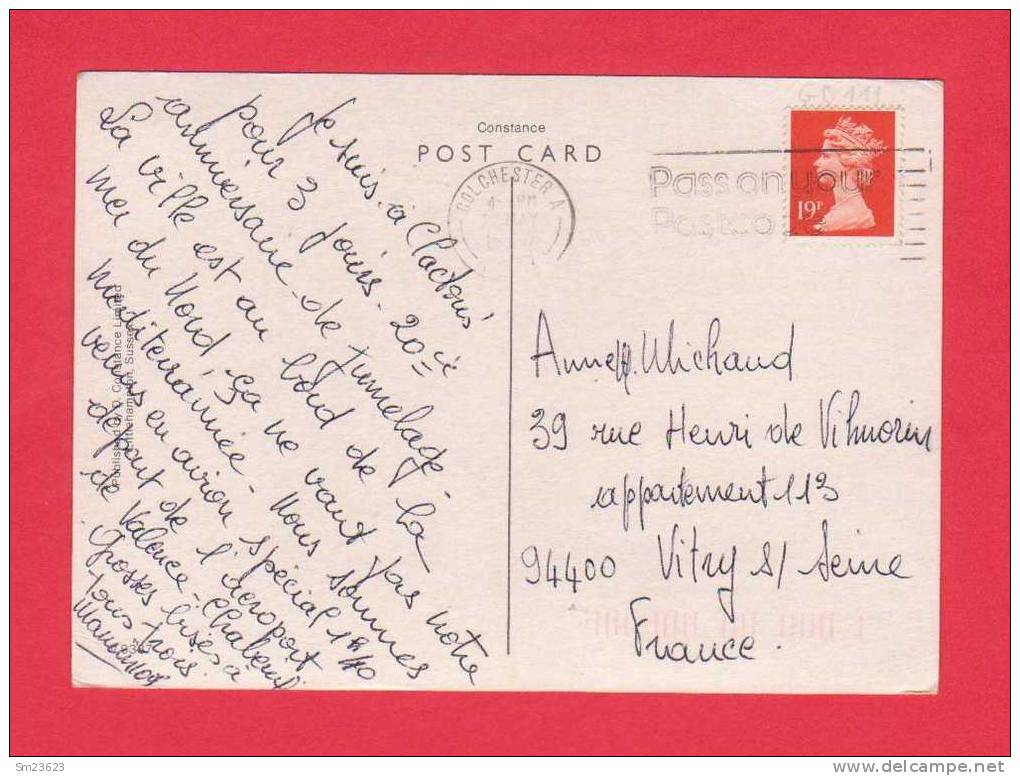 GB 111
Constance
POST CARD
COLCHESTER A
MAY
Pass on your
Postco
19P
Je suis à Clacton
pour 3 jours - 20è
anniversaire de jumelage.
La ville est au bord de la
mer du Nord, ça ne vaut pas notre
méditerrannée - Nous sommes
venus en avion spécial
départ de l'aéroport
de Valence - Chabeuil
Grosses bises à
tous trois.
Published by D. Constance Limited
Littlehampton, Sussex
Anne H. Michaud
39 rue Henri de Vilmorin
appartement 113
94400 Vitry s/ Seine
France.
Sm23623
delcampe.net